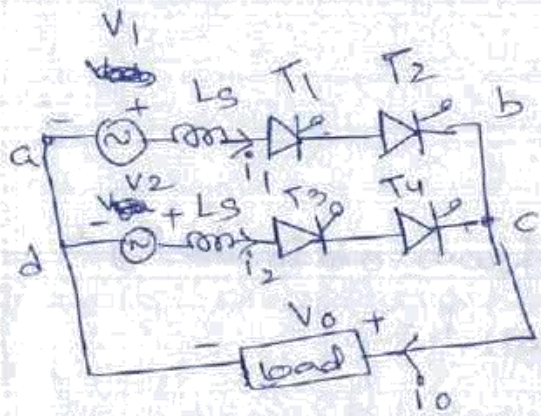 V1
+ Ls T1 T2
- b
a
i1
V2 T3 T4
- + Ls
c
d i2
V0
- Load +
i0